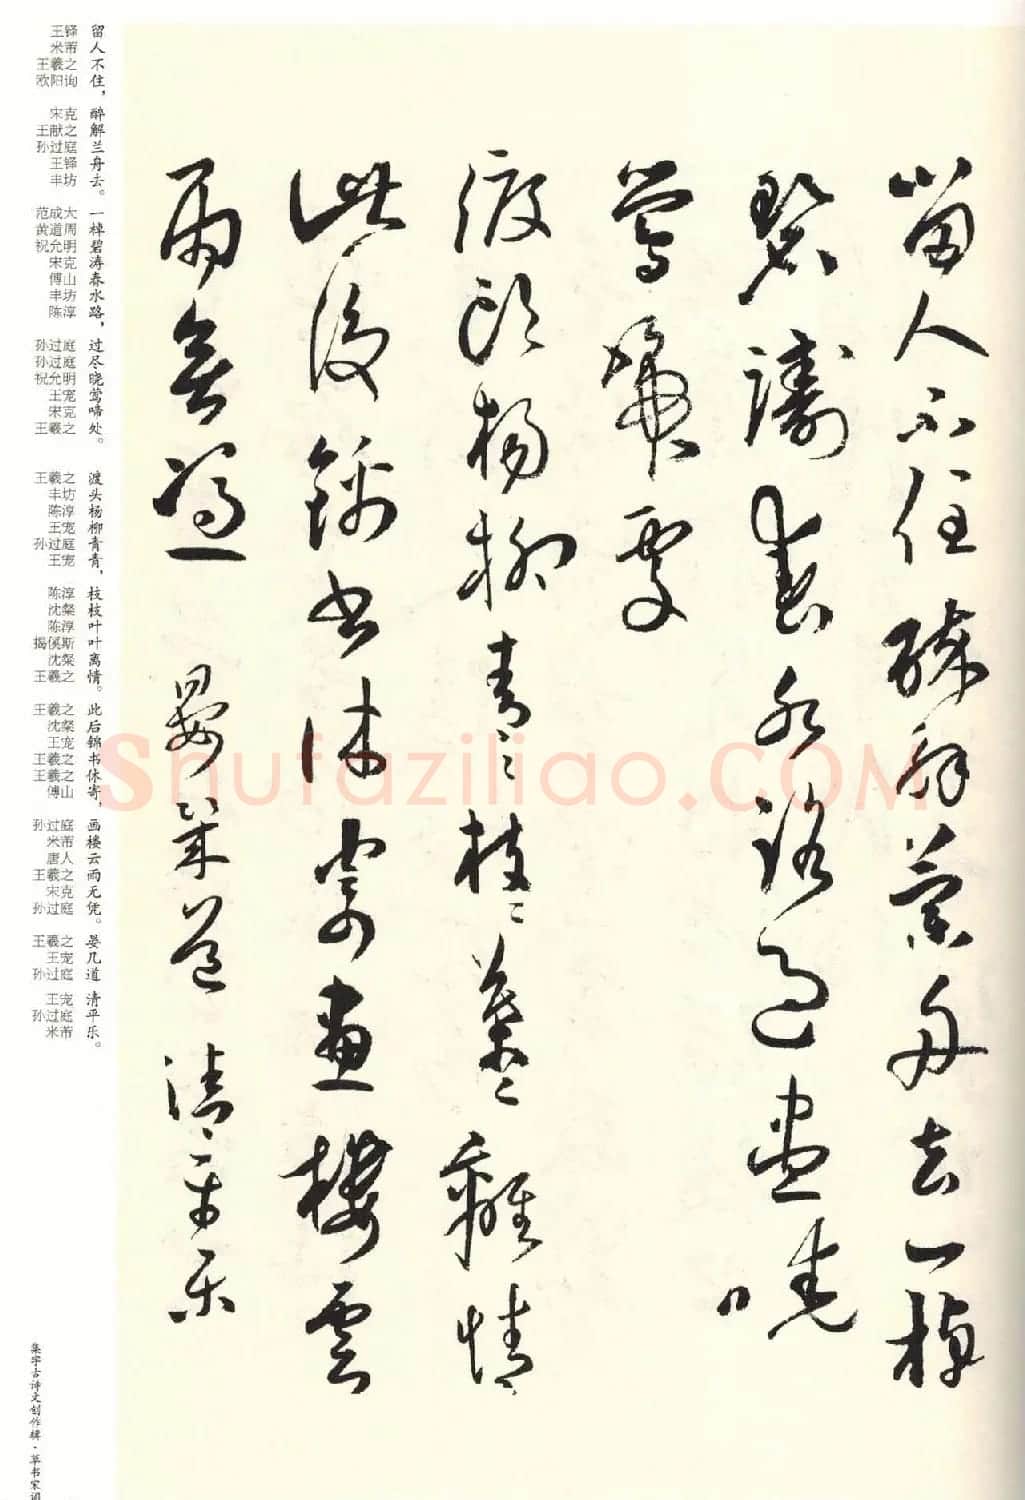 留人不住醉解蘭舟去一棹
碧濤春水路過盡曉
鶯啼處
渡頭楊柳青〻枝〻葉〻離情
此後錦書休寄畫樓雲
雨無憑 晏幾道 清平樂
王铎 留
米芾 人
王羲之 不
欧阳询 住，
宋克 醉
王献之 解
孙过庭 兰
王铎 舟
丰坊 去。
范成大 一
黄道周 棹
祝允明 碧
宋克 涛
傅山 春
丰坊 水
陈淳 路，
孙过庭 过
孙过庭 尽
祝允明 晓
王宠 莺
宋克 啼
王羲之 处。
王羲之 渡
丰坊 头
陈淳 杨
王宠 柳
孙过庭 青
王宠 青，
陈淳 枝
沈粲 枝
陈淳 叶
揭傒斯 叶
沈粲 离
王羲之 情。
王羲之 此
沈粲 后
王宠 锦
王羲之 书
王羲之 休
傅山 寄，
孙过庭 画
米芾 楼
唐人 云
王羲之 雨
宋克 无
孙过庭 凭。
王羲之 晏
王宠 几
孙过庭 道
王宠 清
孙过庭 平
米芾 乐。
集字古诗文创作碑·草书宋词
Shufaziliao.COM